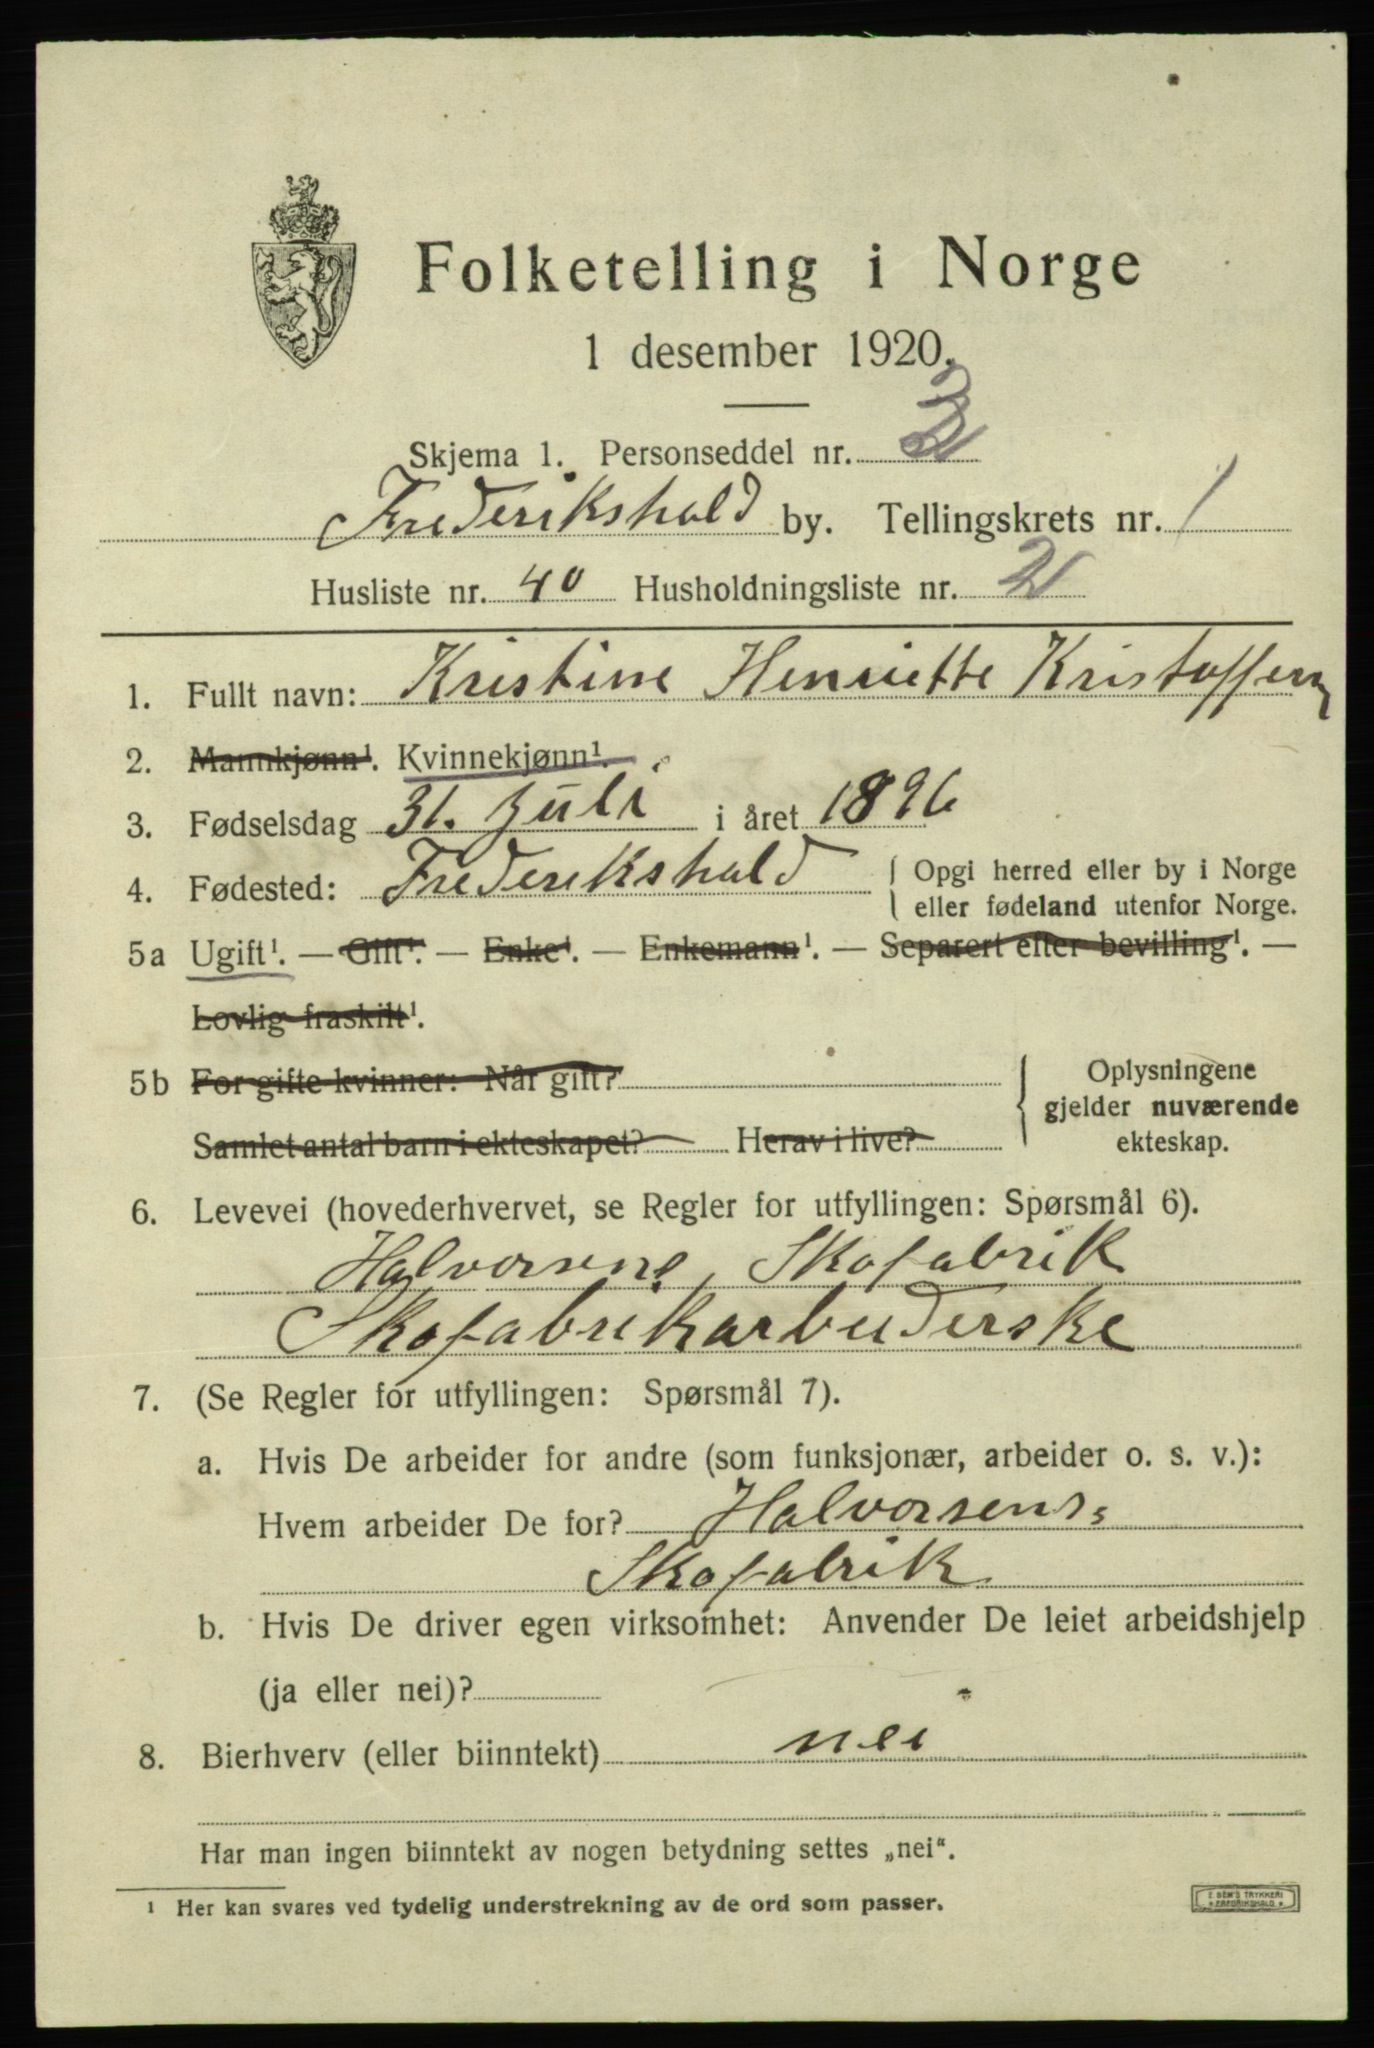 Folketelling i Norge
1 desember 1920.
Skjema 1. Personseddel nr.
Frederikshald by. Tellingskrets nr. 1
Husliste nr. 40 Husholdningsliste nr. 2
1. Fullt navn: Kristine Henriette Kristoffersen
2. Mannkjønn¹. Kvinnekjønn¹.
3. Fødselsdag 31. Juli i året 1896
4. Fødested: Frederikshald { Opgi herred eller by i Norge
eller fødeland utenfor Norge.
5a Ugift¹. — Gift¹. — Enke¹. — Enkemann¹. — Separert efter bevilling¹. —
Lovlig fraskilt¹.
5b For gifte kvinner: Når gift? } Oplysningene
gjelder nuværende
Samlet antal barn i ekteskapet? Herav i live? ekteskap.
6. Levevei (hovederhvervet, se Regler for utfyllingen: Spørsmål 6).
Halvorsens Skofabrik
Skofabrikarbeiderske
7. (Se Regler for utfyllingen: Spørsmål 7).
a. Hvis De arbeider for andre (som funksjonær, arbeider o. s. v.):
Hvem arbeider De for? Halvorsens
Skofabrik
b. Hvis De driver egen virksomhet: Anvender De leiet arbeidshjelp
(ja eller nei)?
8. Bierhverv (eller biinntekt) nei
Har man ingen biinntekt av nogen betydning settes „nei“.
¹ Her kan svares ved tydelig understrekning av de ord som passer.
E. SEM'S TRYKKERI
FREDRIKSHALD